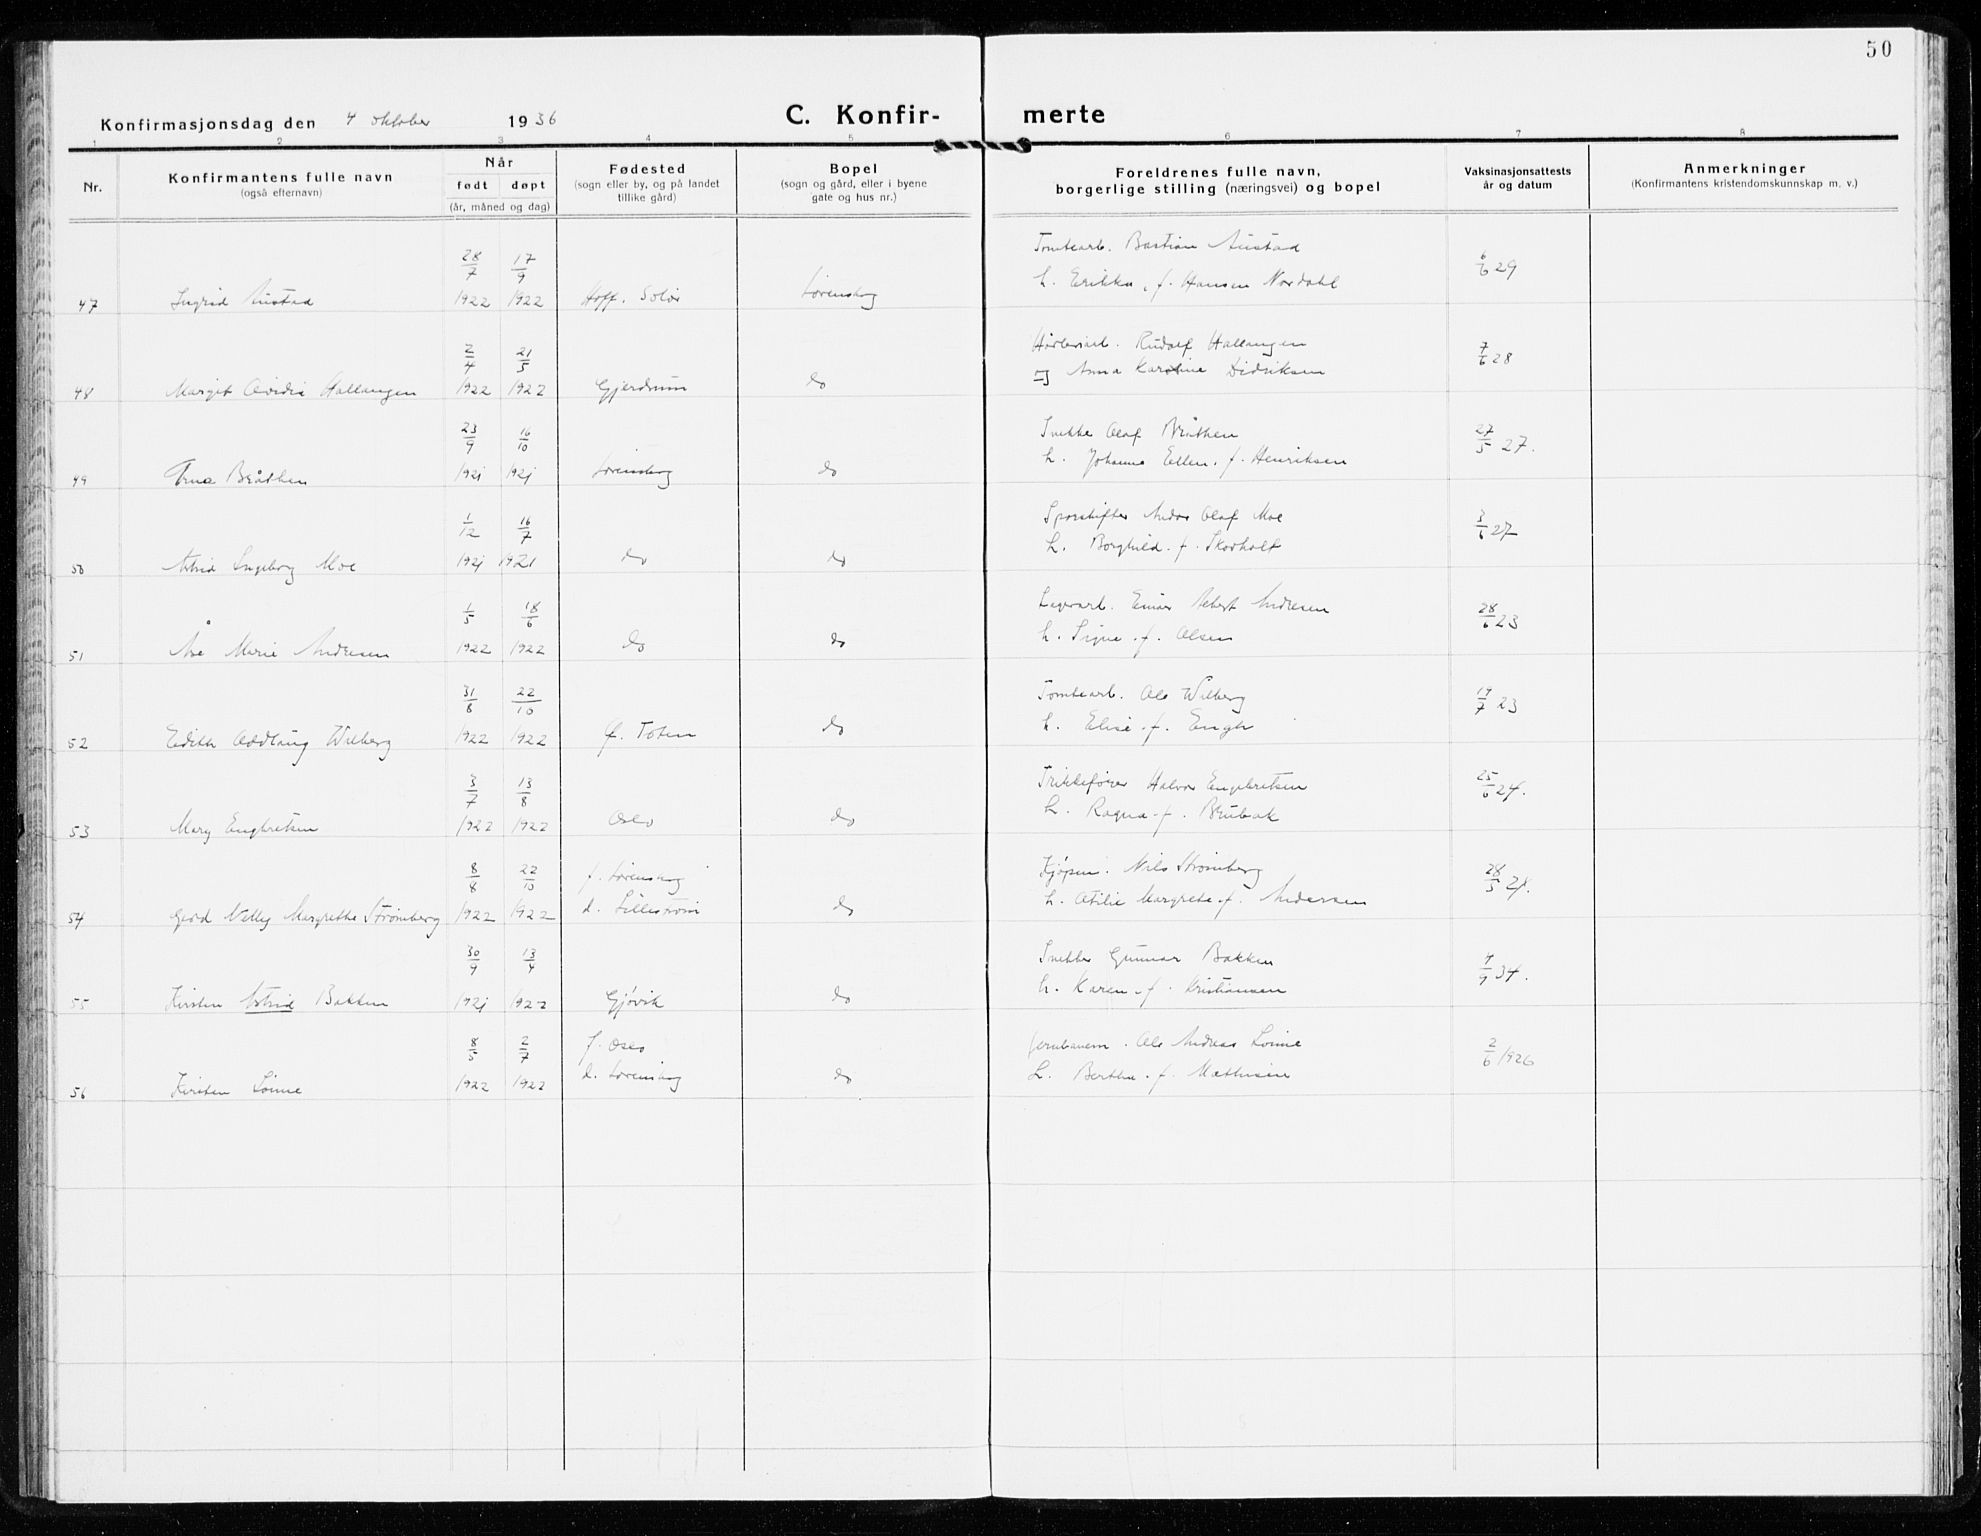 50
Konfirmasjonsdag den 4 oktober 1936
C. Konfir- merte
1 2 3 4 5 6 7 8
Nr.
Konfirmantens fulle navn
(også efternavn)
Når
født døpt
(år, måned og dag)
Fødested
(sogn eller by, og på landet
tillike gård)
Bopel
(sogn og gård, eller i byene
gate og hus nr.)
Foreldrenes fulle navn,
borgerlige stilling (næringsvei) og bopel
Vaksinasjonsattests
år og datum
Anmerkninger
(Konfirmantens kristendomskunnskap m. v.)
28/7 17/9 Tomtearb. Bastian Austad 6/6 29
47 Ingrid Austad 1922 1922 Hoff. Solør Lørenskog h. Erikka, f. Hansen Nordahl
2/4 21/5 Rudolf Hallangen 7/6 28
48 Margit Ovidia Hallangen 1922 1922 Gjerdrum do og Anna Karoline Didriksen
23/9 16/10 Snekker Olaf Bråthen 27/5 27.
49 Erna Bråthen 1921 1921 Lørenskog do h. Johanna Ellen. f. Henriksen
1/12 16/7 Sporskifter Andor Olaf Moe 3/6 27
50 Astrid Ingeborg Moe 1921 1921 do do h. Borghild. f. Skovholt
1/5 18/6 Lagerarb. Einar Albert Andresen 28/6 23
51 Åse Marie Andresen 1922 1922 do do h. Signe. f. Olsen
31/8 22/10 Tomtearb. Ole Wilberg 19/7 23
52 Edith Oddlaug Wilberg 1922 1922 Ø. Toten do h. Elise. f. Engh
3/7 13/8 Trikkefører Halvor Engebretsen 25/6 24.
53 Mary Engbretsen 1922 1922 Oslo do h. Ragna. f. Brubak
8/8 22/10 f. Lørenskog Kjøpm. Nils Strømberg 28/5 28.
54 Gerd Nelly Margrethe Strømberg 1922 1922 d. Lillestrøm do h. Otilie Margrete. f. Andersen
30/9 13/4 Snekker Gunnar Bakken 9/9 34.
55 Kirsten Astrid Bakken 1921 1922 Gjøvik do h. Karen. f. Kristiansen
8/5 2/7 f. Oslo Jernbanem. Ole Andreas Lønne 2/6 1926
56 Kirsten Lønne 1922 1922 d. Lørenskog do h. Bertha. f. Mathisen